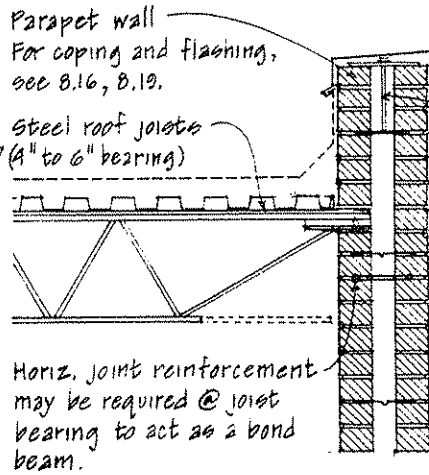 Parapet wall
For coping and flashing,
see 8.16, 8.19.
Steel roof joists
(4" to 6" bearing)
Horiz. joint reinforcement
may be required @ joist
bearing to act as a bond
beam.